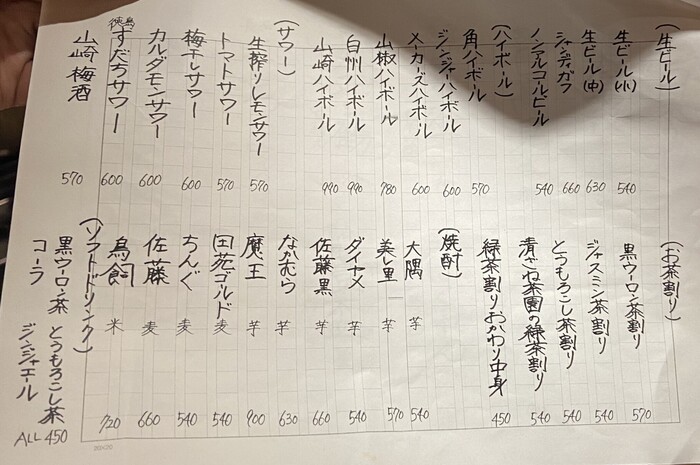 (生ビール)
生ビール(小) 540
生ビール(中) 630
シャンディガフ 660
ノンアルコールビール 540
(ハイボール)
角ハイボール 570
ジンジャーハイボール 600
メーカーズハイボール 600
山椒ハイボール 780
白州ハイボール 990
山崎ハイボール 990
(サワー)
生搾りレモンサワー 570
トマトサワー 570
梅干しサワー 600
カルダモンサワー 600
徳島
すだちサワー 600
山崎梅酒 570
(お茶割り)
黒ウーロン茶割り 570
ジャスミン茶割り 540
とうもろこし茶割り 540
青ざね茶園の緑茶割り 540
緑茶割りおかわり中身 450
(焼酎)
大隅 芋 540
美し里 芋 570
ダイヤメ 芋 540
佐藤黒 芋 660
なかむら 芋 630
魔王 芋 900
田苑ゴールド 麦 540
ちんぐ 麦 540
佐藤 麦 660
鳥飼 米 720
(ソフトドリンク)
黒ウーロン茶 とうもろこし茶
コーラ ジンジャエール
ALL 450